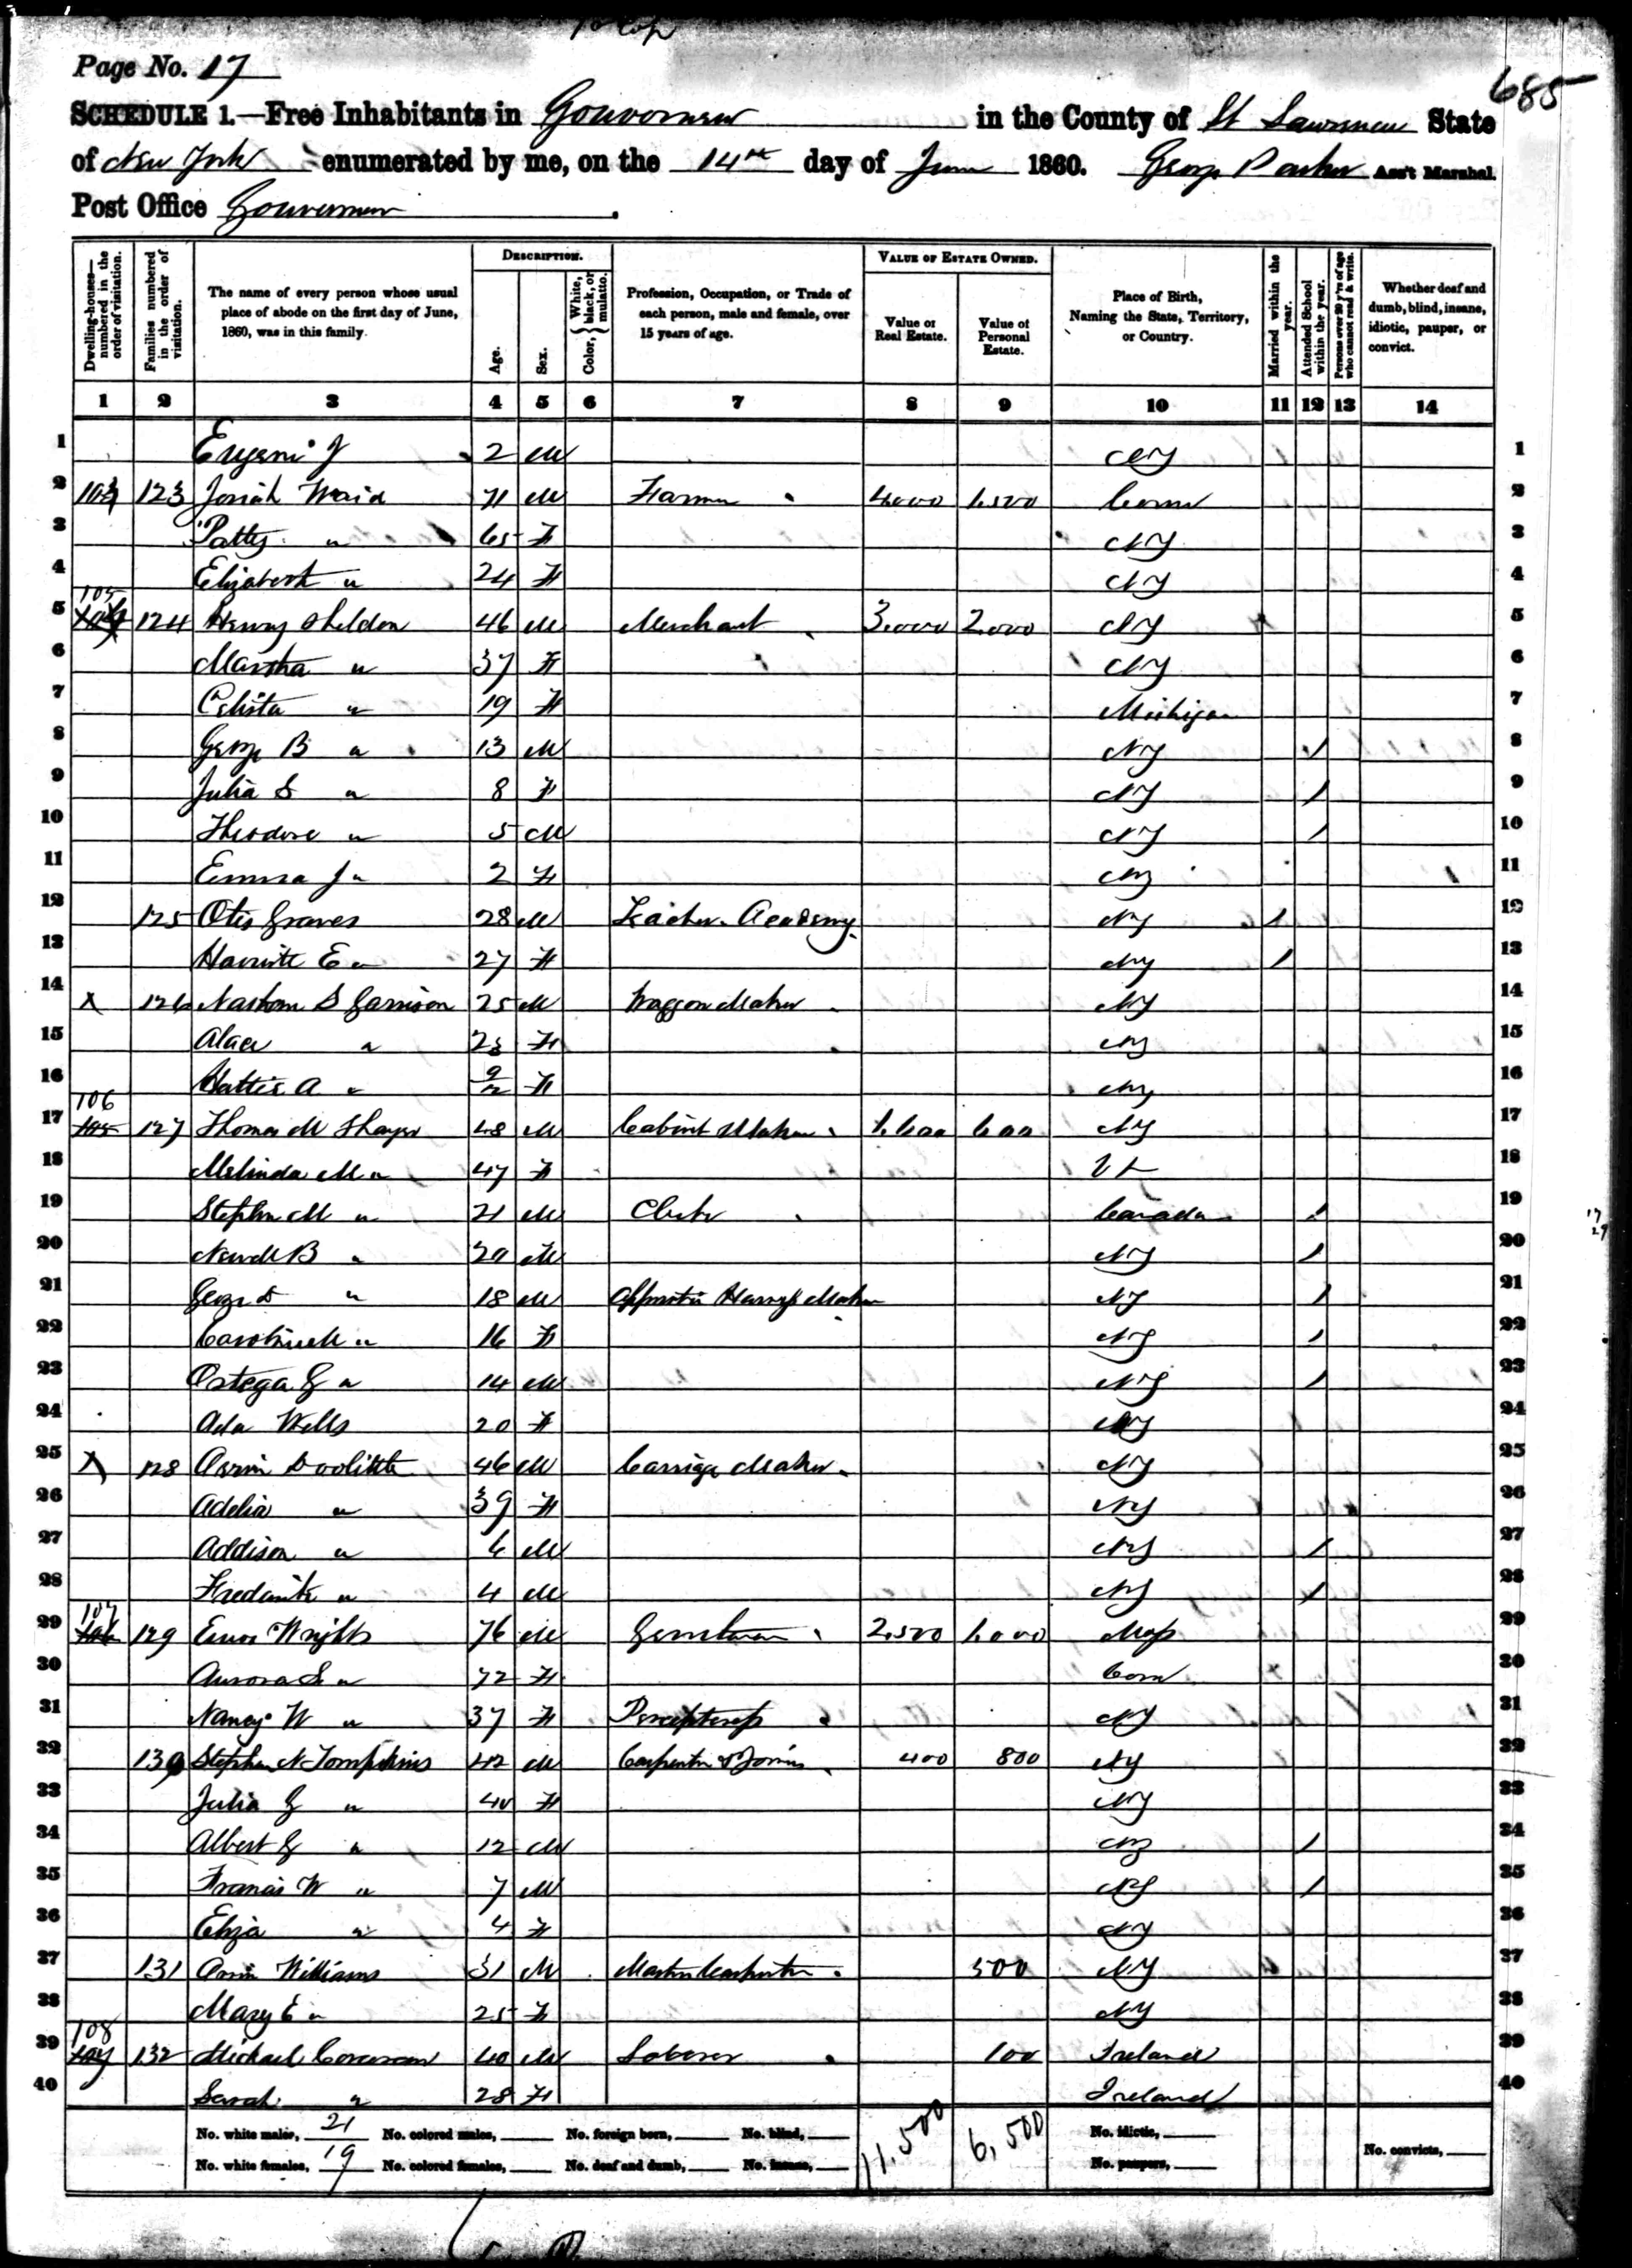 Page No. 17
685
SCHEDULE 1.—Free Inhabitants in Gouverneur in the County of St Lawrence State
of New York enumerated by me, on the 14th day of June 1860. George Parker Ass't Marshal.
Post Office Gouverneur.
Dwelling-houses—numbered in the order of visitation.
Families numbered in the order of visitation.
The name of every person whose usual place of abode on the first day of June, 1860, was in this family.
DESCRIPTION.
Age.
Sex.
Color, { White, black, or mulatto.
Profession, Occupation, or Trade of each person, male and female, over 15 years of age.
VALUE OF ESTATE OWNED.
Value of Real Estate.
Value of Personal Estate.
Place of Birth, Naming the State, Territory, or Country.
Married within the year.
Attended School within the year.
Persons over 20 y'rs of age who cannot read & write.
Whether deaf and dumb, blind, insane, idiotic, pauper, or convict.
1 2 3 4 5 6 7 8 9 10 11 12 13 14
1 Eugene J 2 M NY 1
2 123 Josiah Waid 71 M Farmer 4000 1,500 Conn 2
3 Patty " 65 F NY 3
4 Elizabeth " 24 F NY 4
5 105 124 Henry Sheldon 46 M Merchant 3.000 2.000 NY 5
6 Martha " 37 F NY 6
7 Celista " 19 F Michigan 7
8 George B " 13 M NY / 8
9 Julia S " 8 F NY / 9
10 Theodore " 5 M NY / 10
11 Emma J " 2 F NY 11
12 125 Otis Graves 28 M Teacher. Academy. NY / 12
13 Harriette E " 27 F NY / 13
14 X 126 S Garrison 25 M Waggon Maker NY 14
15 " F NY 15
16 Hattie A. " F NY 16
17 106 127 Thomas M Thayer 48 M Cabinet Maker 1.600 600 NY 17
18 Melinda M " 47 F Vt 18
19 Stephen M " 21 M Clerk Canada / 19
20 Newell B " 20 M NY / 20
21 George " 18 M Apprentice Harness Maker NY / 21
22 Caroline M " 16 F NY / 22
23 Ortega G " 14 M NY / 23
24 Ada Wells 20 F NY 24
25 X 128 Orrin Doolittle 46 M Carriage Maker NY 25
26 Adelia " 39 F NY 26
27 Addison " 6 M NY / 27
28 Frederick " 4 M NY / 28
29 107 129 Enos Wright 76 M Gentleman 2.500 1.000 Mass 29
30 Aurora S " 72 F Conn 30
31 Nancy W " 37 F Preceptress NY 31
32 130 Stephen N Tompkins 42 M Carpenter & Joiner 400 800 NY 32
33 Julia G " 40 F NY 33
34 Albert G " 12 M NY / 34
35 Francis W " 7 M NY / 35
36 Eliza " 4 F NY 36
37 131 Orrin Williams 31 M Master Carpenter 500 NY 37
38 Mary E " 25 F NY 38
39 108 132 Michael Corcoran 40 M Laborer 100 Ireland 39
40 Sarah " 28 F Ireland 40
No. white males, 21 No. colored males, No. foreign born, No. blind, 11.500 6,500 No. idiotic, No. convicts,
No. white females, 19 No. colored females, No. deaf and dumb, No. insane, No. paupers,